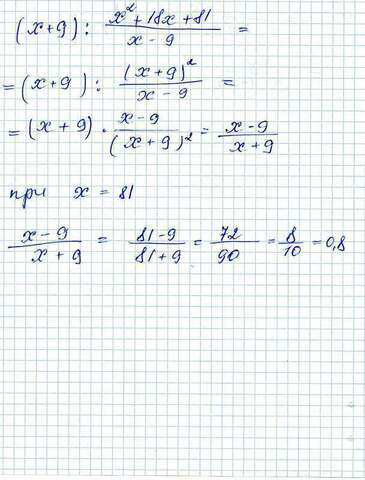 (x+9) : \frac{x² + 18x + 81}{x - 9} =
= (x+9) : \frac{(x+9)²}{x - 9} =
= (x + 9) · \frac{x - 9}{(x + 9)²} = \frac{x - 9}{x + 9}
при x = 81
\frac{x - 9}{x + 9} = \frac{81 - 9}{81 + 9} = \frac{72}{90} = \frac{8}{10} = 0,8